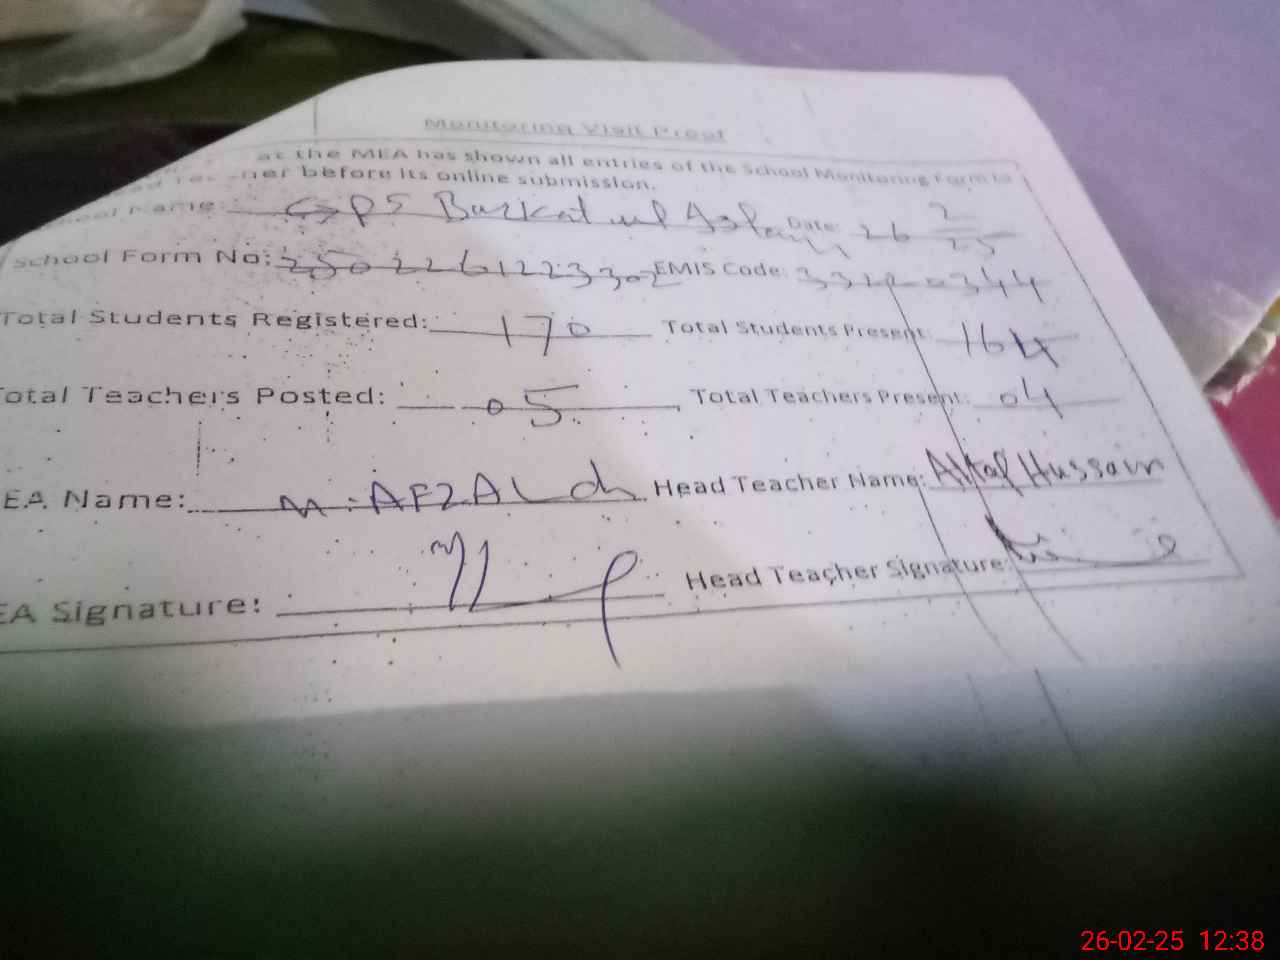 Monitoring Visit Proof
at the MEA has shown all entries of the School Monitoring Form to
before its online submission.
Name: GPS Barkat ul Islam Date: 26 2/25
School Form No: 2502261223302 EMIS Code: 33120344
Total Students Registered: 170 Total Students Present: 164
otal Teachers Posted: 05 Total Teachers Present: 04
EA Name: M. AFZAL ch Head Teacher Name: Altaf Hussain
EA Signature: Head Teacher Signature:
26-02-25 12:38